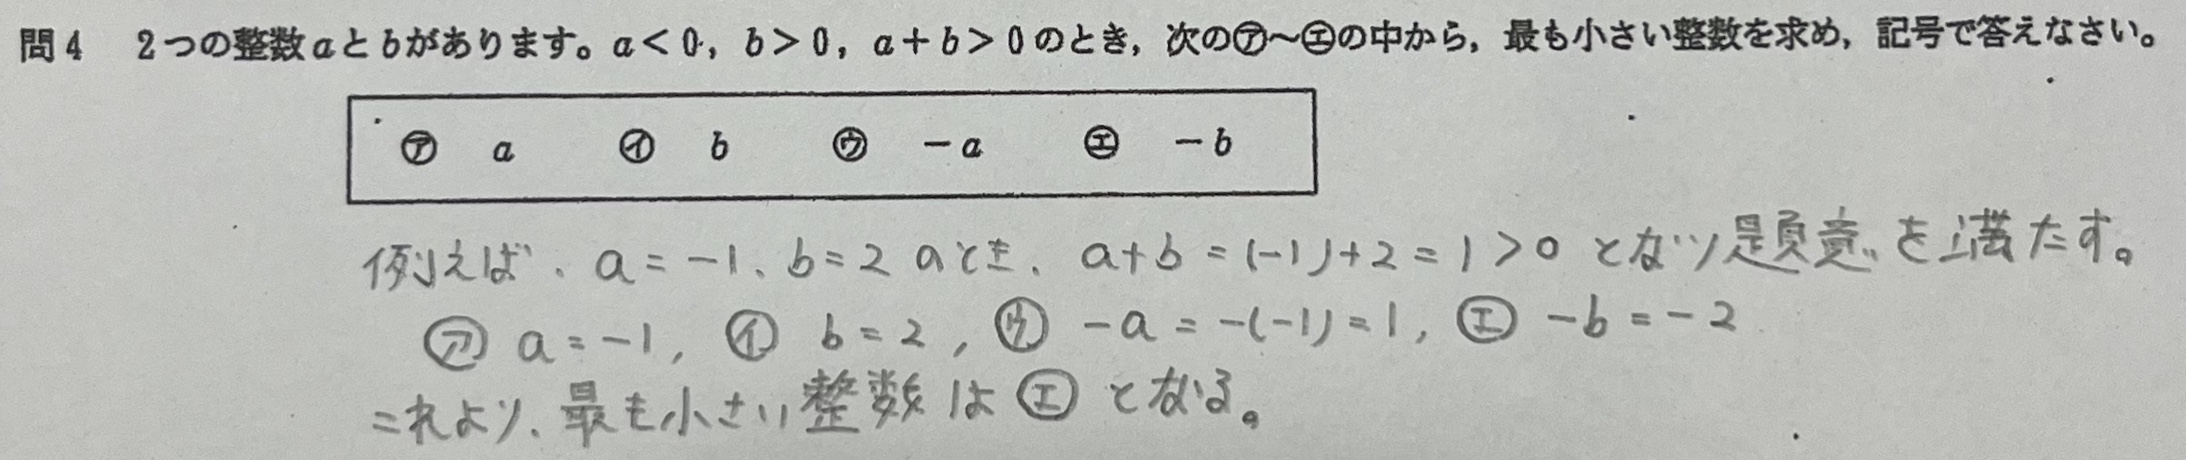 問4 2つの整数aとbがあります。a<0, b>0, a+b>0のとき, 次の㋐～㋓の中から, 最も小さい整数を求め, 記号で答えなさい。
㋐ a ㋑ b ㋒ -a ㋓ -b
例えば、a=-1、b=2のとき、a+b=(-1)+2=1>0となり題意を満たす。
㋐ a=-1, ㋑ b=2, ㋒ -a=-(-1)=1, ㋓ -b=-2
これより、最も小さい整数は㋓となる。